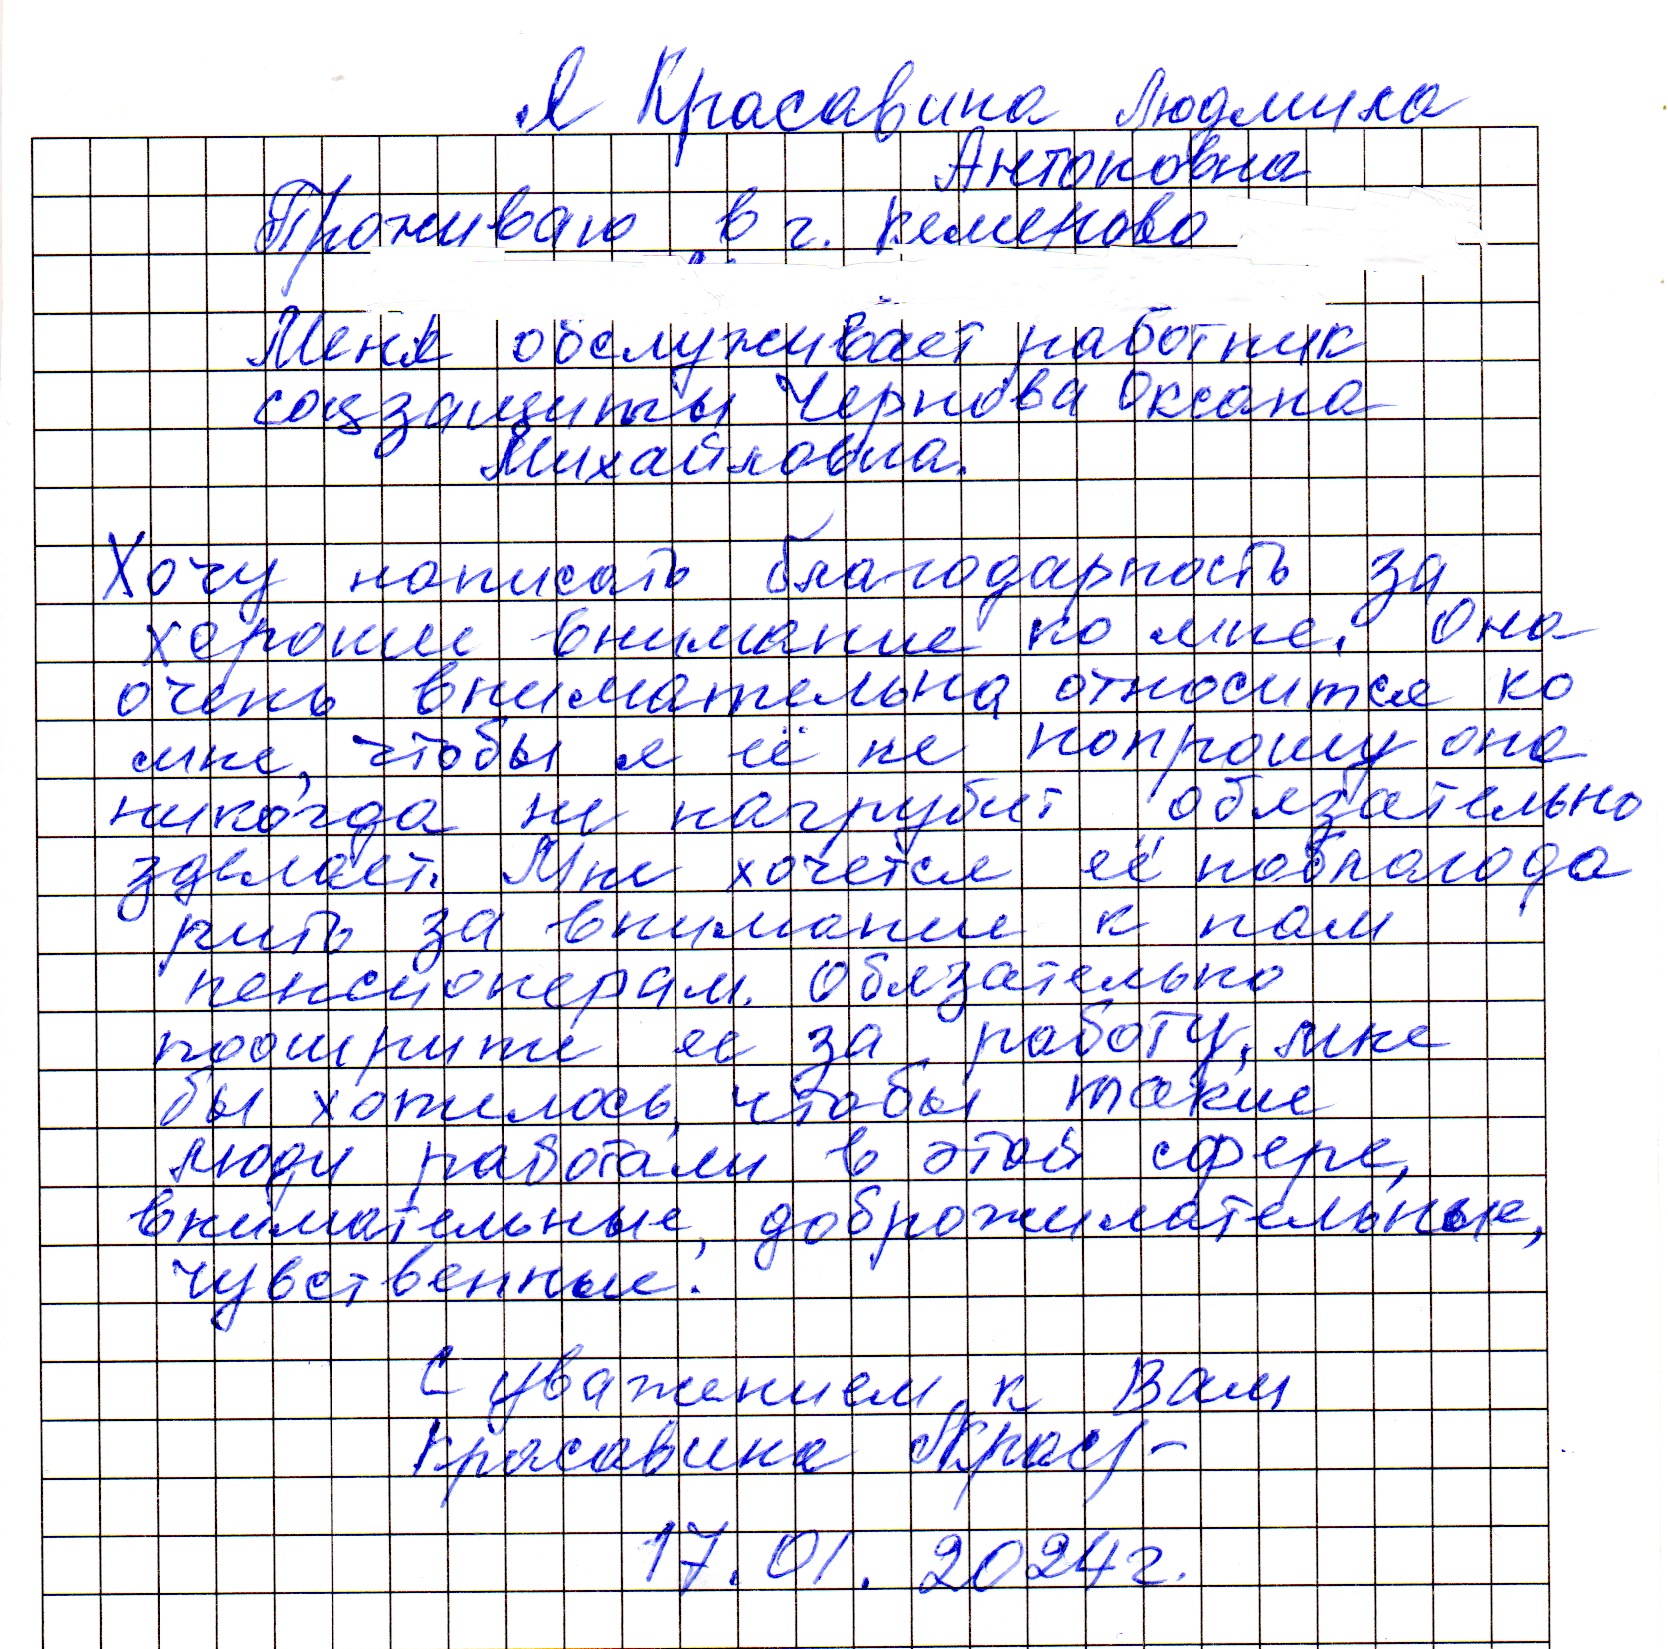 Я Красавина Людмила
Антоновна
Проживаю в г. Кемерово
Меня обслуживает работник
соцзащиты Чернова Оксана
Михайловна.
Хочу написать благодарность за
хорошие внимание ко мне. Она
очень внимательна относится ко
мне, чтобы я её не попрошу она
никогда не нагрубит обязательно
зделает. Мне хочется её поблагода
рить за внимание к нам
пенсионерам. Обязательно
поощрите ее за работу, мне
бы хотилось, чтобы такие
люди работали в этой сфере,
внимательные, доброжилательные,
чувственные.
С уважением к Вам
Красавина
17.01.2024г.